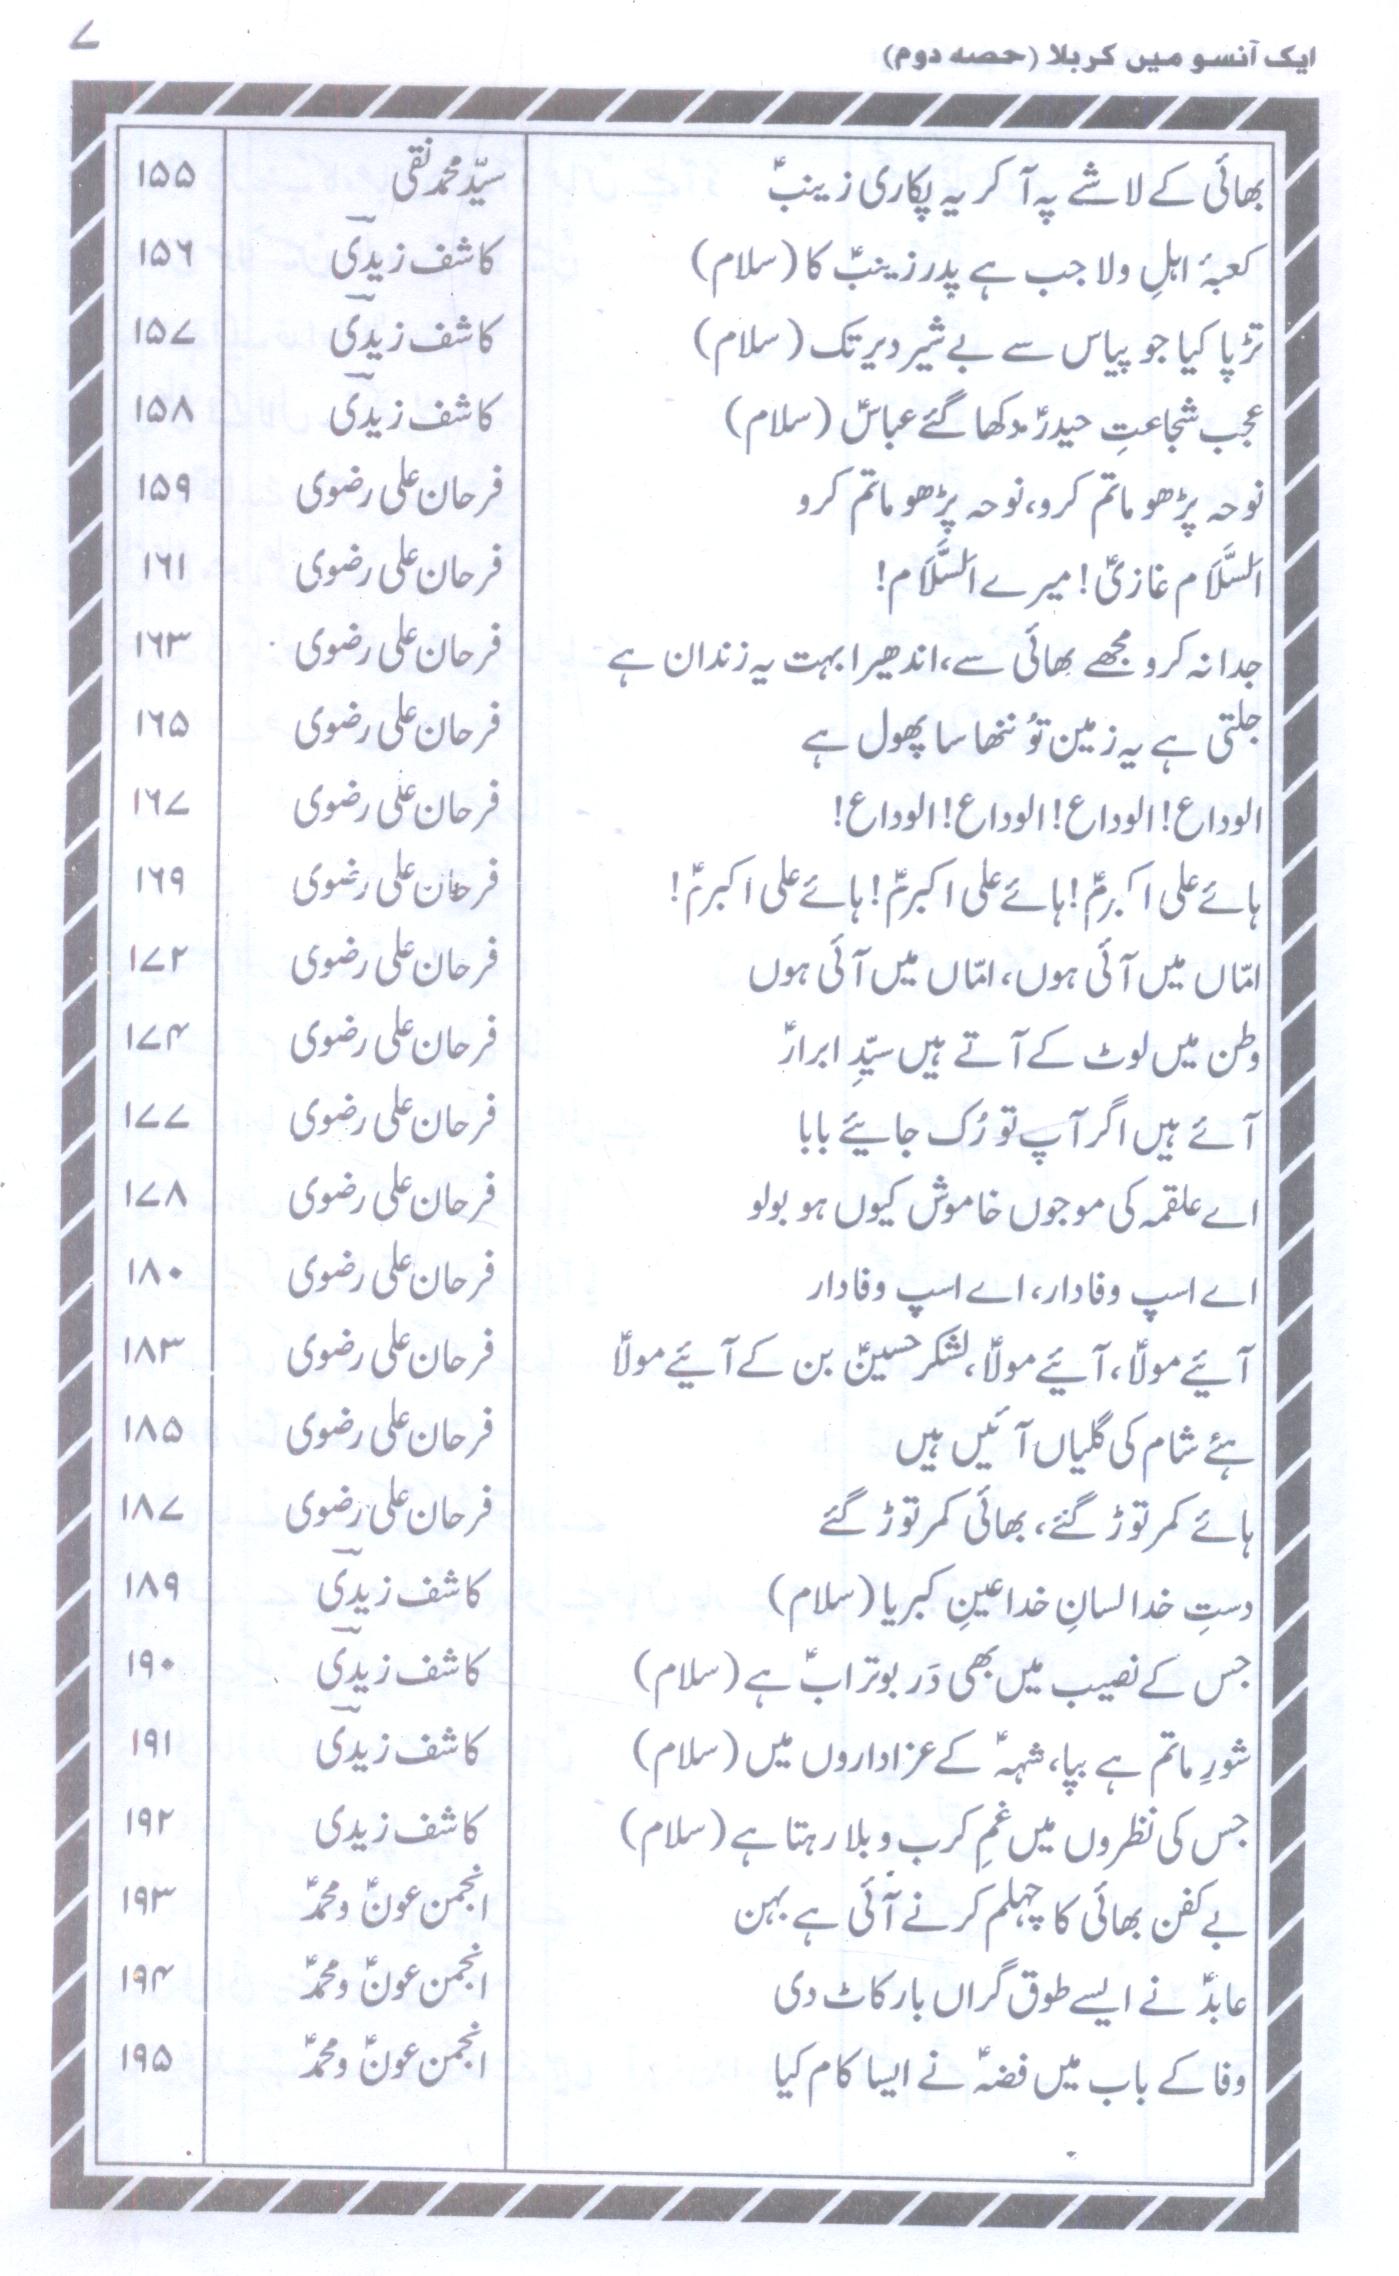 ایک آنسو میں کربلا (حصہ دوم) ۷
بھائی کے لاشے پہ آ کر یہ پکاری زینبؑ سیّد محمد نقی ۱۵۵
کعبۂ اہلِ ولا جب ہے پدر زینبؑ کا (سلام) کاشف زیدیؔ ۱۵۶
تڑپا کیا جو پیاس سے بے شیر دیر تک (سلام) کاشف زیدیؔ ۱۵۷
عجب شجاعتِ حیدرؑ دکھا گئے عباسؑ (سلام) کاشف زیدیؔ ۱۵۸
نوحہ پڑھو ماتم کرو، نوحہ پڑھو ماتم کرو فرحان علی رضوی ۱۵۹
اَلسَّلَام غازیؑ! میرے اَلسَّلَام! فرحان علی رضوی ۱۶۱
جدا نہ کرو مجھے بھائی سے، اندھیرا بہت یہ زندان ہے فرحان علی رضوی ۱۶۳
جلتی ہے یہ زمین تُو ننھا سا پھول ہے فرحان علی رضوی ۱۶۵
الوداع! الوداع! الوداع! الوداع! فرحان علی رضوی ۱۶۷
ہائے علی اکبرؑ! ہائے علی اکبرؑ! ہائے علی اکبرؑ! فرحان علی رضوی ۱۶۹
امّاں میں آئی ہوں، امّاں میں آئی ہوں فرحان علی رضوی ۱۷۲
وطن میں لوٹ کے آتے ہیں سیّدِ ابرارؑ فرحان علی رضوی ۱۷۴
آئے ہیں اگر آپ تو رُک جائیے بابا فرحان علی رضوی ۱۷۷
اے علقمہ کی موجوں خاموش کیوں ہو بولو فرحان علی رضوی ۱۷۸
اے اسپ وفادار، اے اسپ وفادار فرحان علی رضوی ۱۸۰
آئیے مولاؑ، آئیے مولاؑ، لشکر حسینؑ بن کے آئیے مولاؑ فرحان علی رضوی ۱۸۳
ہئے شام کی گلیاں آئیں ہیں فرحان علی رضوی ۱۸۵
ہائے کمر توڑ گئے، بھائی کمر توڑ گئے فرحان علی رضوی ۱۸۷
دستِ خدا لسانِ خدا عینِ کبریا (سلام) کاشف زیدیؔ ۱۸۹
جس کے نصیب میں بھی دَر بوترابؑ ہے (سلام) کاشف زیدیؔ ۱۹۰
شورِ ماتم ہے بپا، شہہؑ کے عزاداروں میں (سلام) کاشف زیدیؔ ۱۹۱
جس کی نظروں میں غمِ کرب و بلا رہتا ہے (سلام) کاشف زیدی ۱۹۲
بے کفن بھائی کا چہلم کرنے آئی ہے بہن انجمن عونؑ و محمدؑ ۱۹۳
عابدؑ نے ایسے طوق گراں بار کاٹ دی انجمن عونؑ و محمدؑ ۱۹۴
وفا کے باب میں فضہؑ نے ایسا کام کیا انجمن عونؑ و محمدؑ ۱۹۵